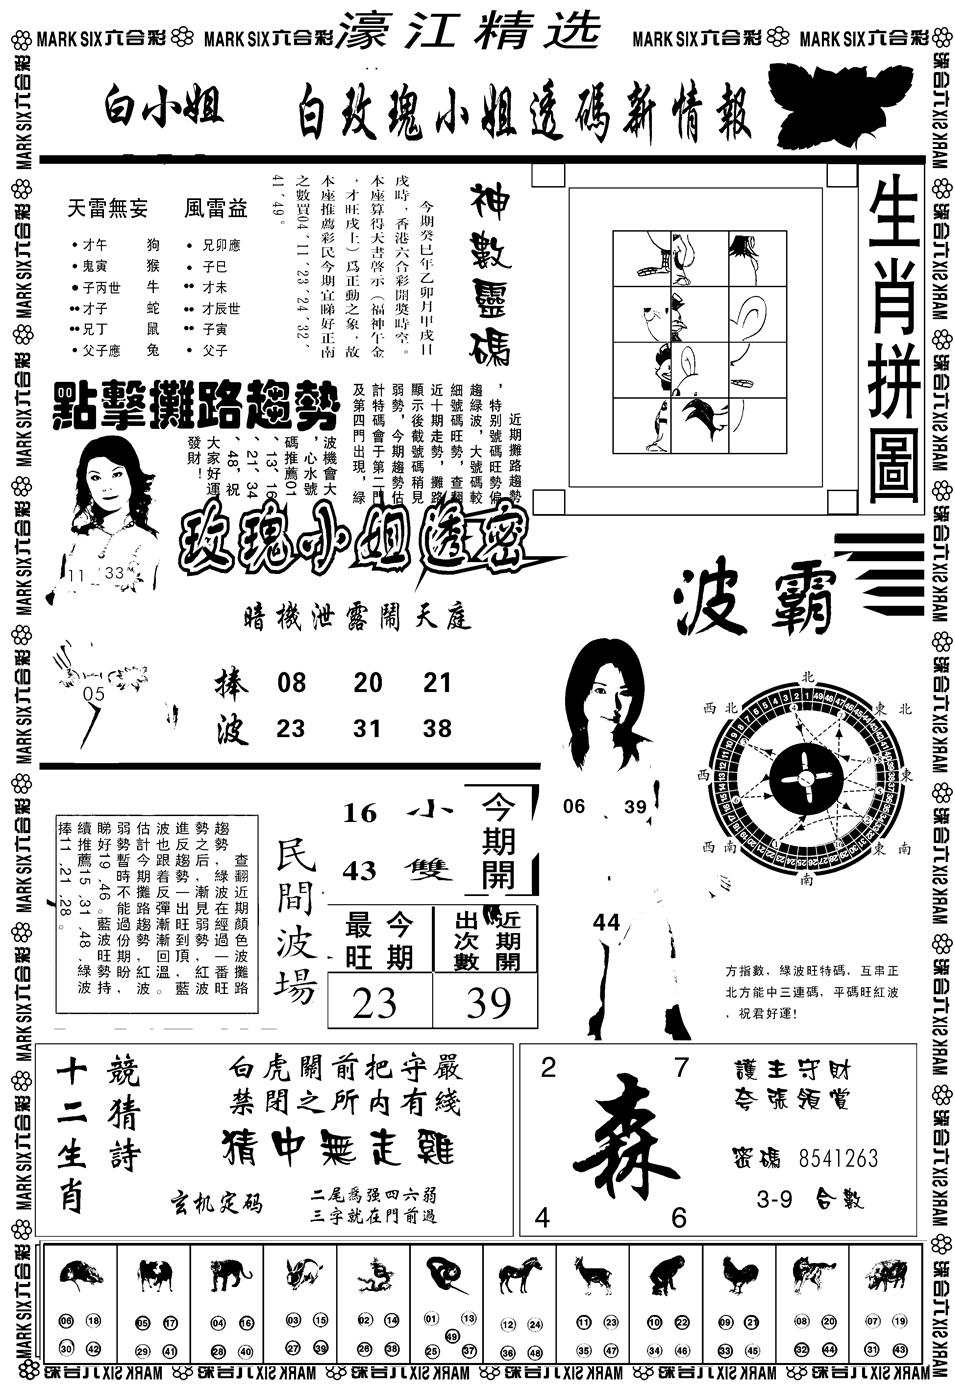 MARK SIX六合彩 MARK SIX六合彩 濠江精选 MARK SIX六合彩 MARK SIX六合彩
白小姐 白玫瑰小姐透碼新情報
天雷無妄 風雷益
才午 狗 兄卯應
鬼寅 猴 子巳
子丙世 牛 才未
才子 蛇 才辰世
兄丁 鼠 子寅
父子應 兔 父子
神數靈碼
今期癸巳年乙卯月甲戌日
戌時，香港六合彩開獎時空。
本座算得天書啓示（福神午金
，才旺戌上）爲正動之象，故
本座推薦彩民今期宜睇好正南
之數買04、11、23、24、32、
41、49。
生肖拼圖
點擊攤路趨勢
近期攤路趨勢
，特别號碼旺勢偏
趨綠波，大號碼較
細號碼旺勢，查翻
近十期走勢，攤路
顯示後截號碼稍見
弱勢，今期趨勢估
計特碼會于第二門
及第四門出現，綠
波機會大
，心水號
碼推薦01
、13、16
、21、34
、48，祝
大家好運
發財！
11 33
05
玫瑰小姐透密
暗機泄露鬧天庭
捧 08 20 21
波 23 31 38
波霸
06 39
44
北
西北 東北
西 東
西南 東南
南
方指數，綠波旺特碼，互串正
北方能中三連碼，平碼旺紅波
，祝君好運！
查翻近期顏色波攤路
趨勢，綠波在經過一番旺
勢之后，漸見弱勢，紅波
進反趨勢一出旺到頂，藍
波也跟着反彈漸漸回溫。
估計今期攤路趨勢紅波
弱勢暫時不能過份期盼，
睇好19、46。藍波旺勢持
續推薦15、31、48、綠波
捧11、21、28。
民間波場
16 小
43 雙
今期開
今期最旺
近期開出次數
23 39
十二生肖
競猜詩
白虎關前把守嚴
禁閉之所内有綫
猜中無走雞
玄机定码
二尾爲强四六弱
三字就在門前過
2 7
森
4 6
護主守財
夸張領賞
密碼 8541263
3-9 合數
06 18 05 17 04 16 03 15 02 14 01 13 12 24 11 23 10 22 09 21 08 20 07 19
49
30 42 29 41 28 40 27 39 26 38 25 37 36 48 35 47 34 46 33 45 32 44 31 43